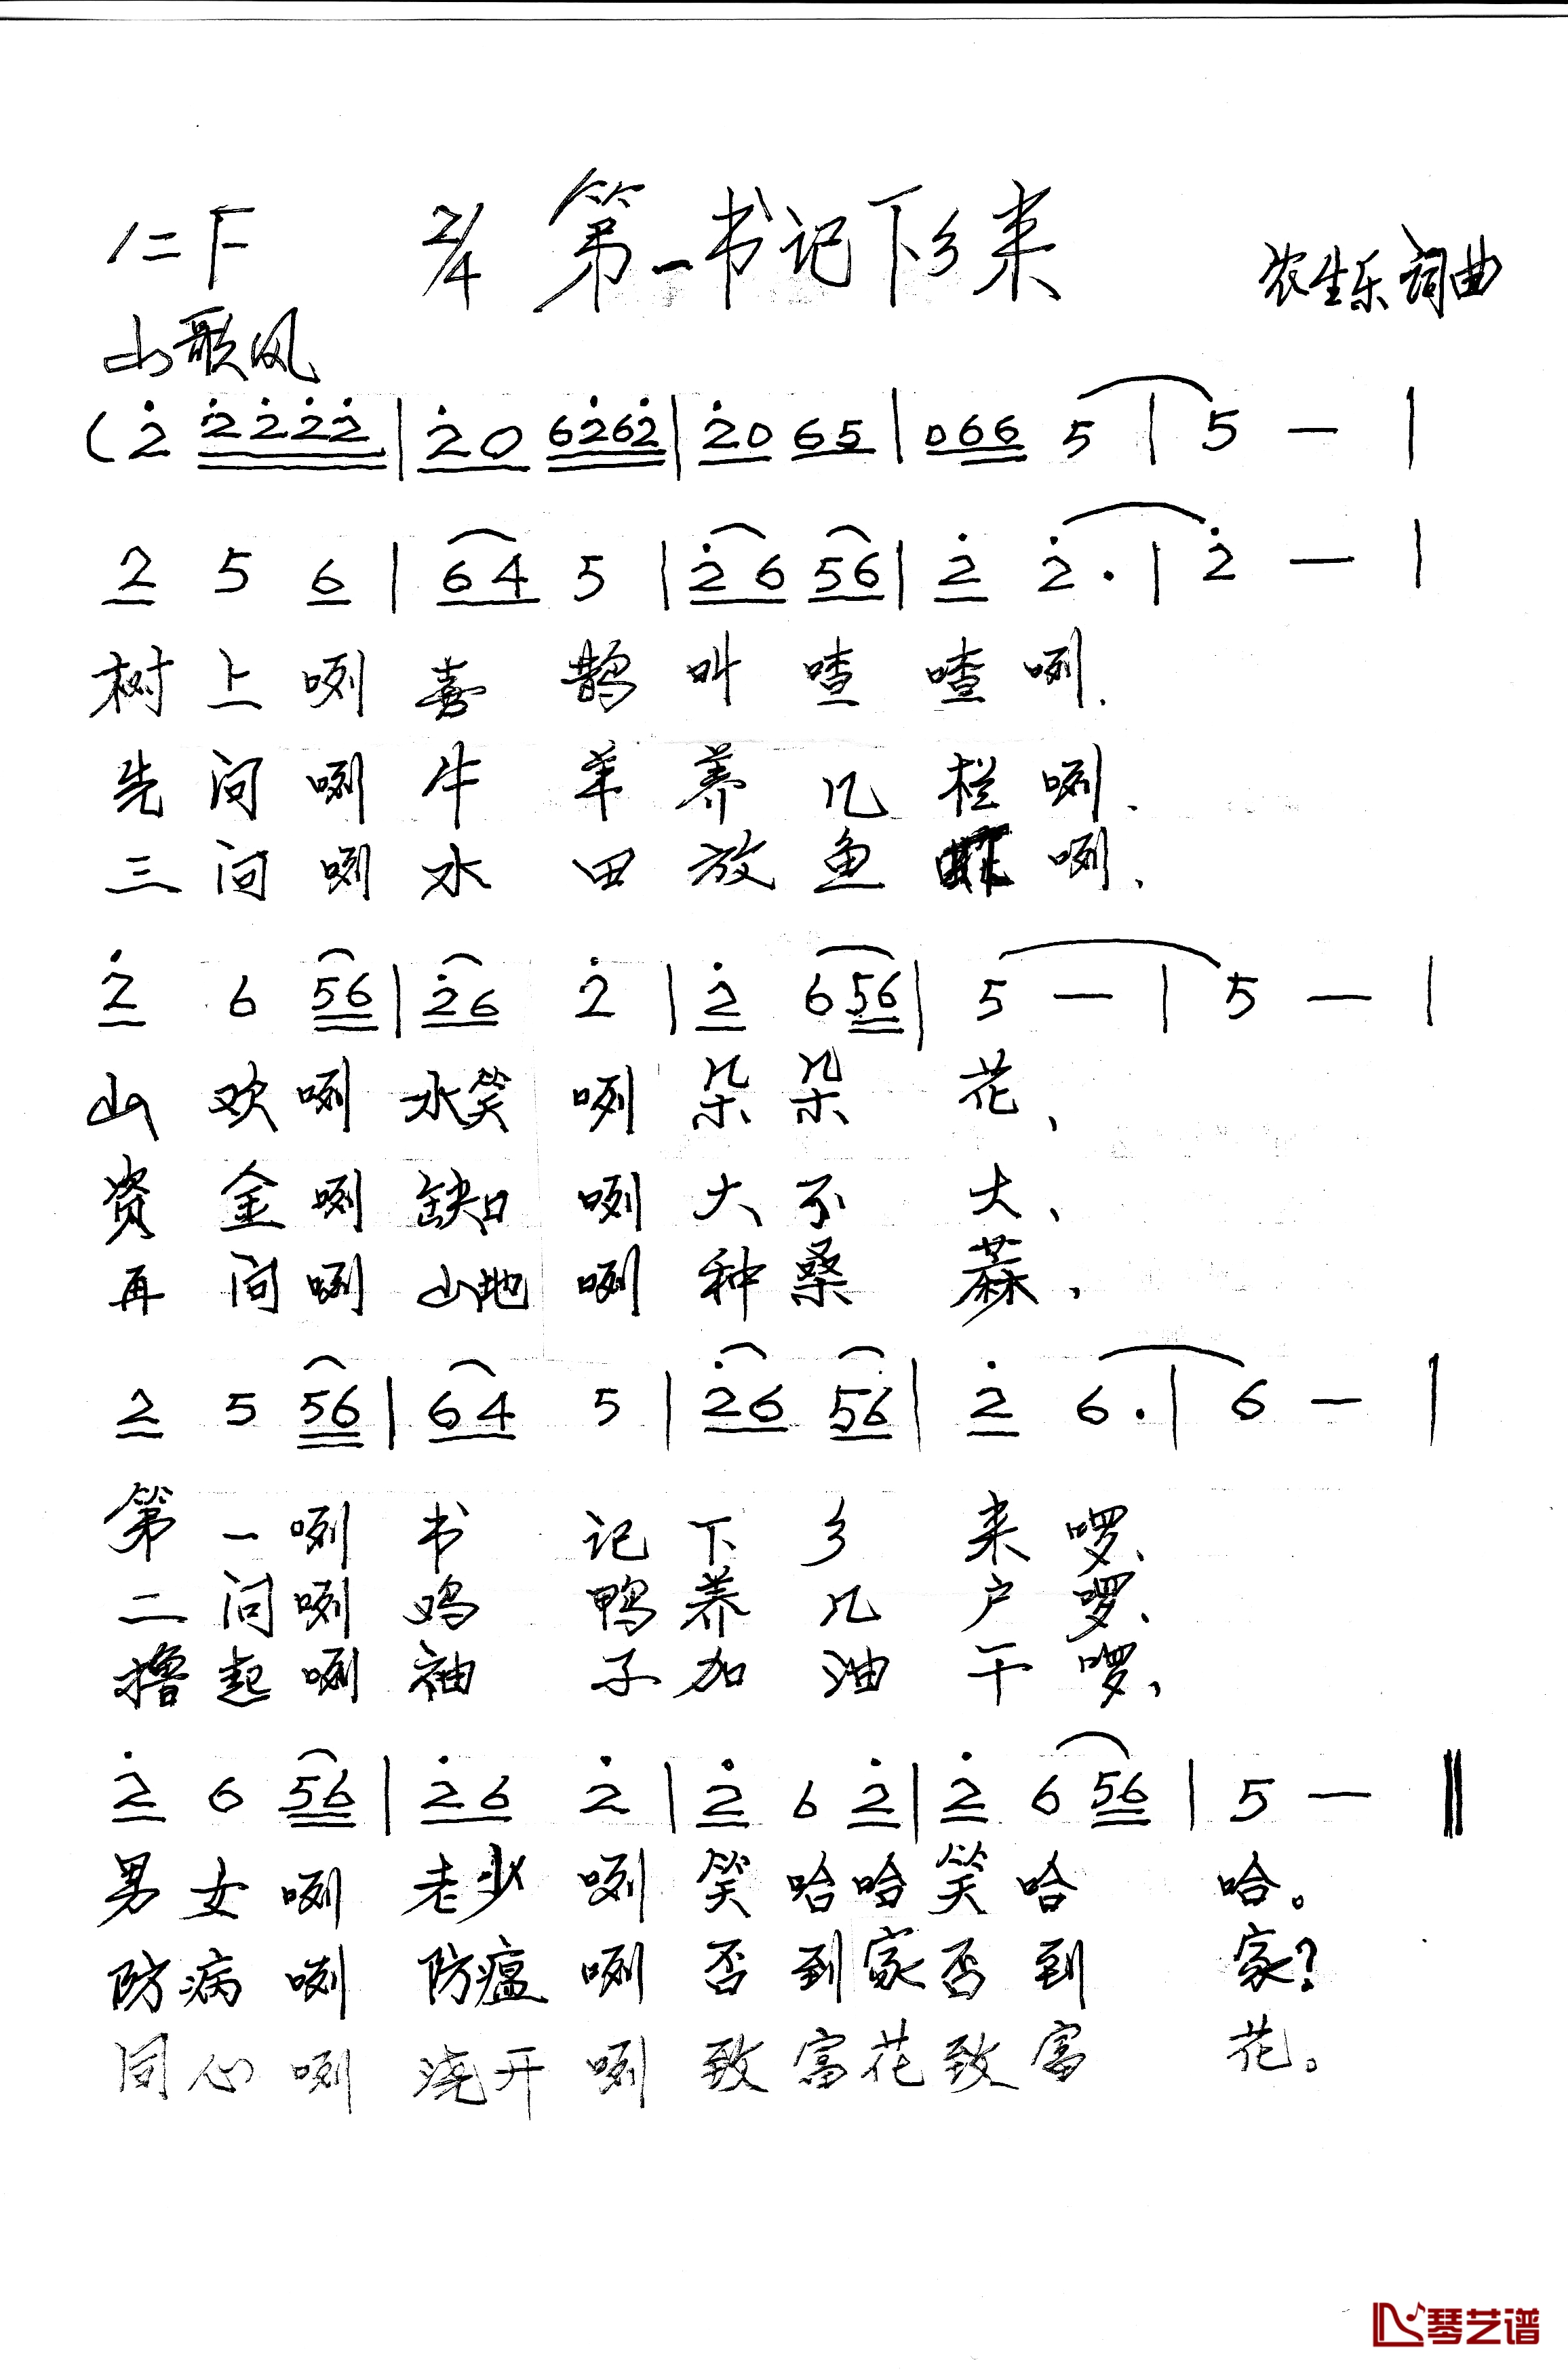 1=F 2/4 第一书记下乡来
农生乐 词曲
山歌风
(2̇ 2̇2̇2̇2̇ | 2̇0 62̇62̇ | 2̇0 65 | 066 5 | 5 — |
2 5 6 | 64 5 | 2̇6 56 | 2̇ 2̇· | 2̇ — |
树上咧喜鹊叫喳喳咧、
先问咧牛羊养几栏咧、
三问咧水田放鱼咧、
2̇ 6 56 | 2̇6 2̇ | 2̇ 656 | 5 — | 5 — |
山欢咧水笑咧朵朵花、
资金咧缺口咧大不大、
再问咧山地咧种桑蔴、
2 5 56 | 64 5 | 2̇6 56 | 2̇ 6· | 6 — |
第一咧书记下乡来啰、
二问咧鸡鸭养几户啰、
撸起咧袖子加油干啰、
2̇ 6 56 | 2̇6 2̇ | 2̇ 6 2̇ | 2̇ 6 56 | 5 — ‖
男女咧老少咧笑哈哈笑哈哈。
防病咧防瘟咧否到家否到家?
同心咧浇开咧致富花致富花。
琴艺谱